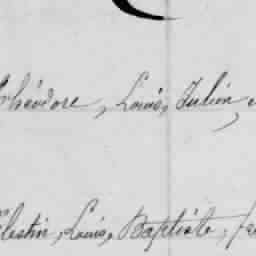 Théodore, Louis, Julien,
Célestin, Louis, Baptiste,